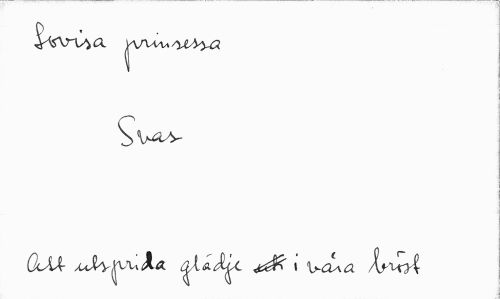 Lovisa prinsessa
Svas
Att utsprida glädje i våra bröst